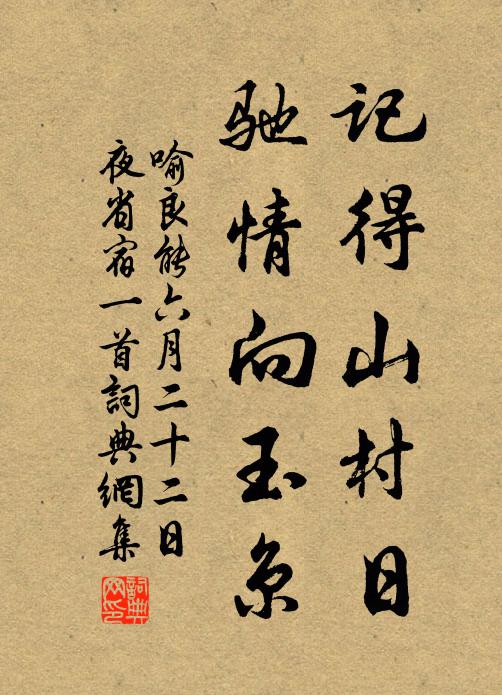 记得山村日
驰情向玉京
喻良能六月二十二日
夜省宿一首詞典網集
詞典
网印